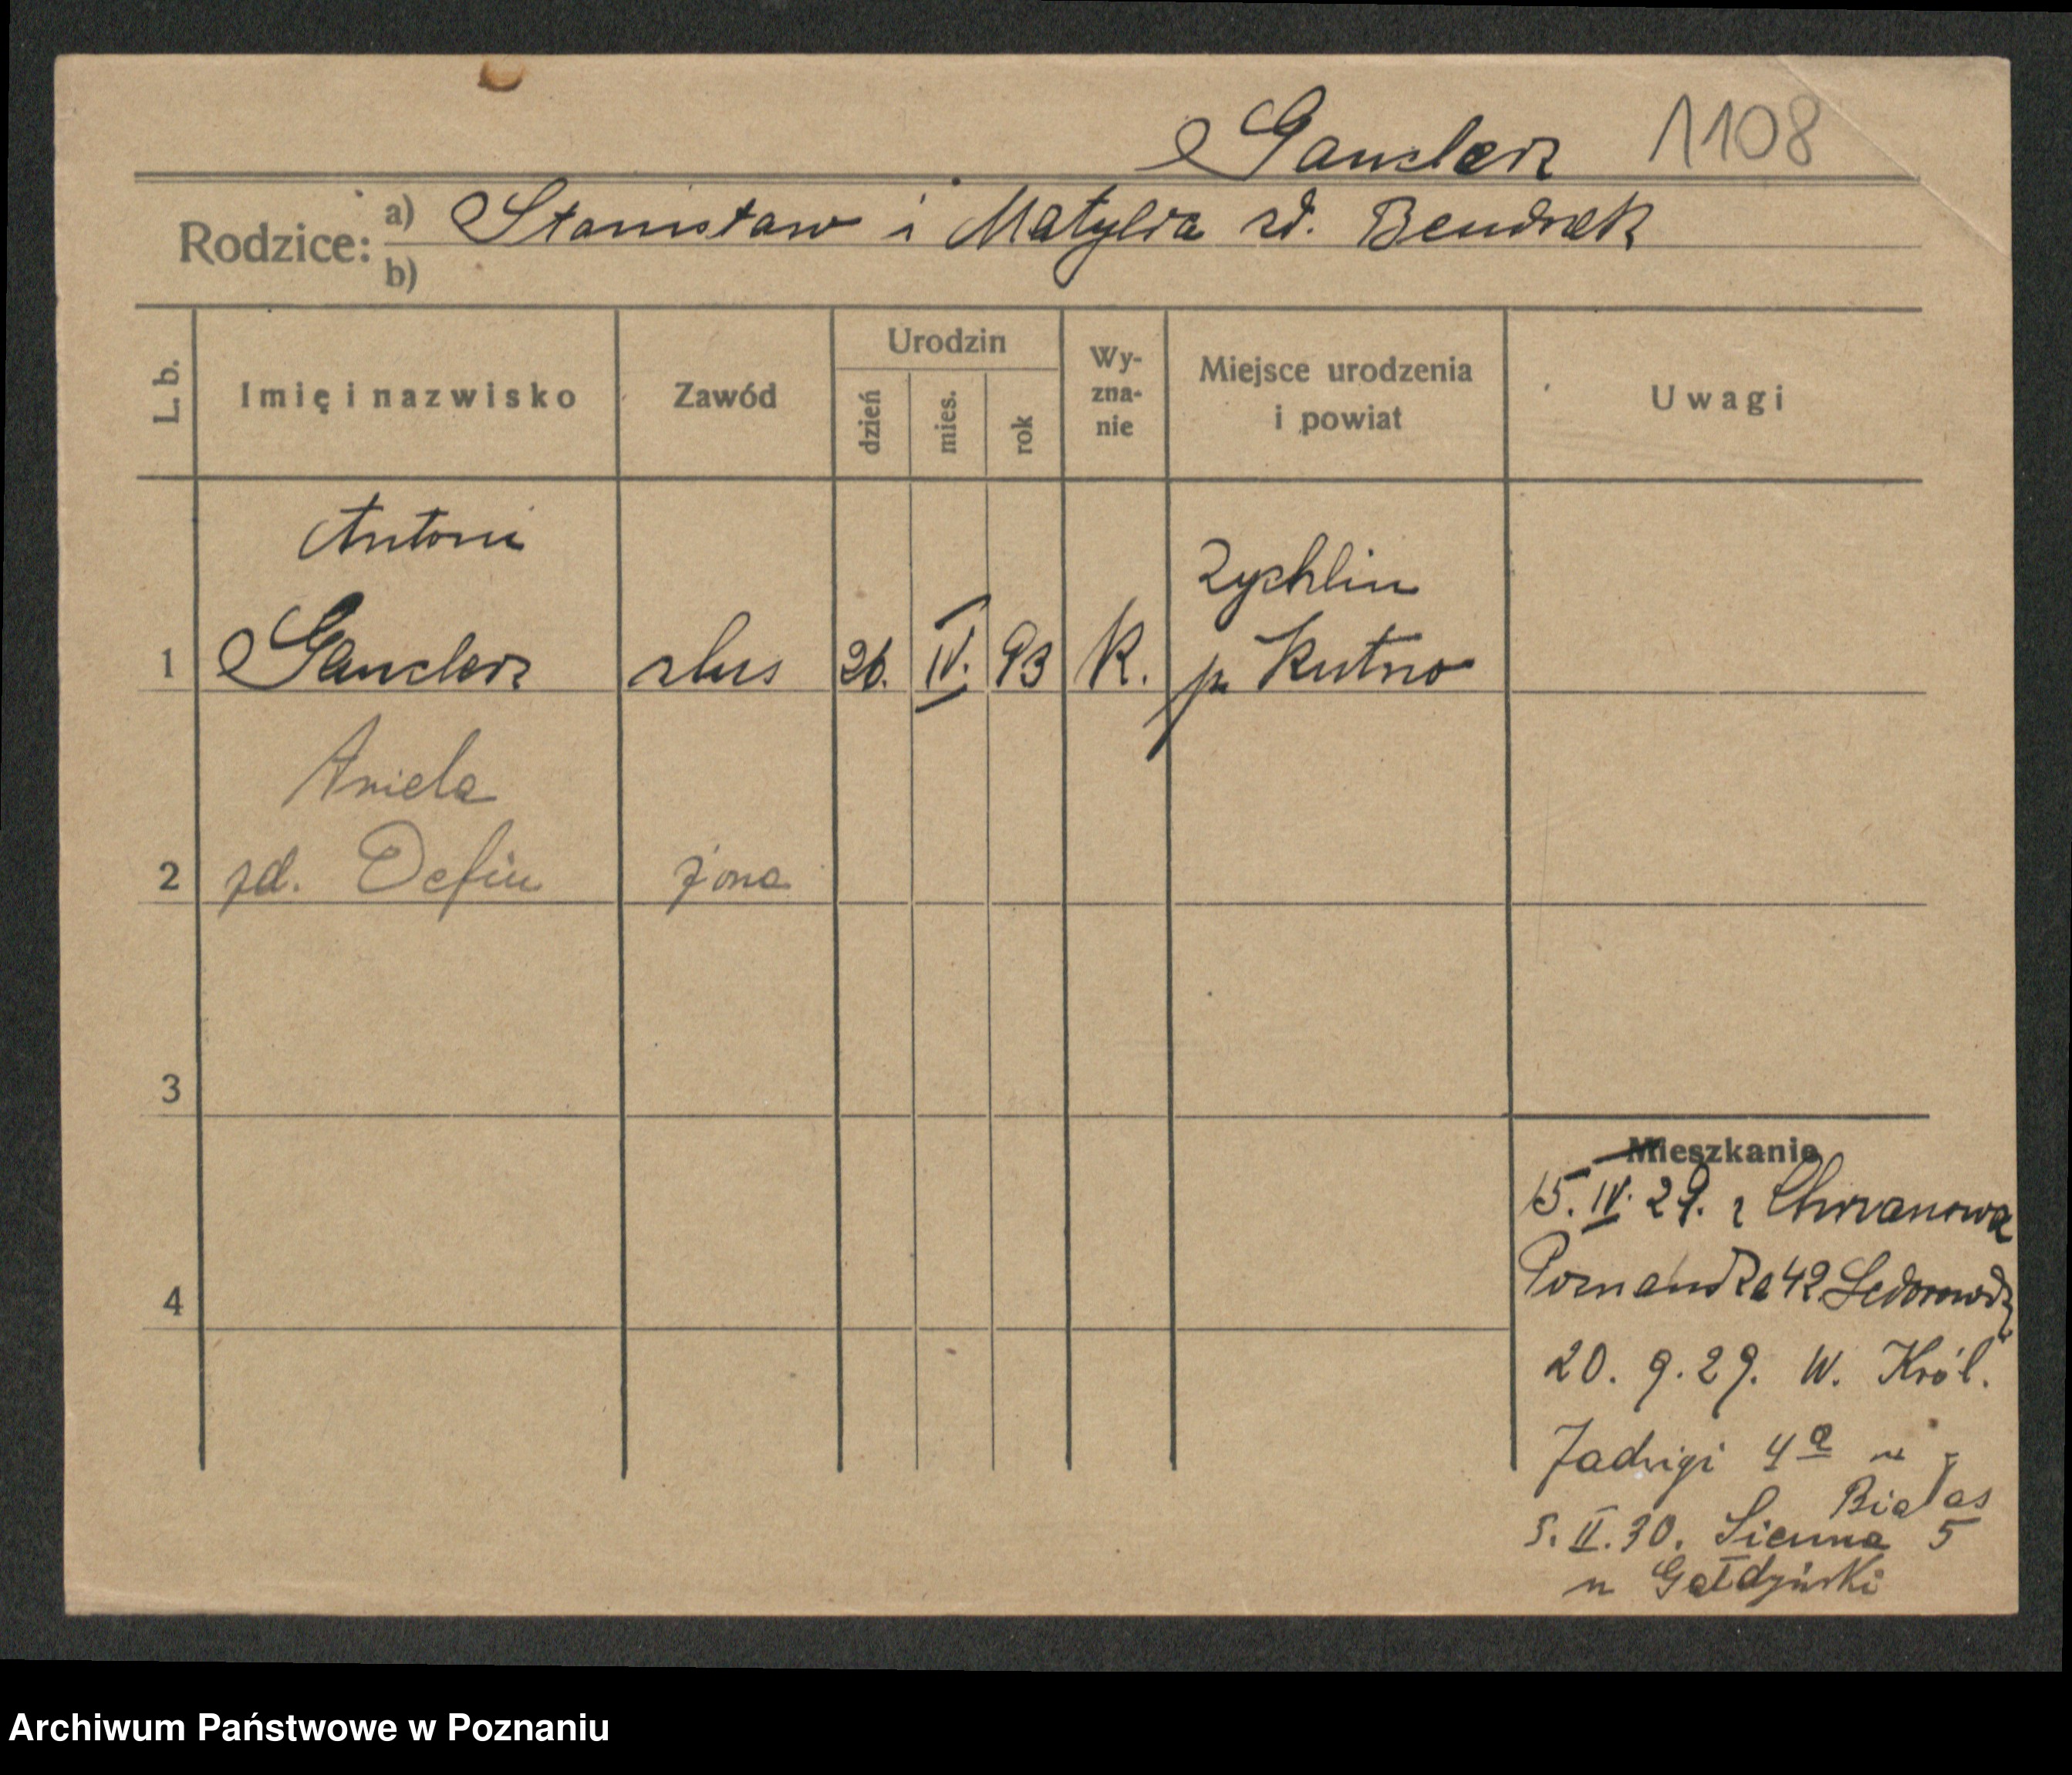 Ganclerz 1108
Rodzice: a) Stanisław i Matylda zd. Bendrek
b)
L. b. Imię i nazwisko Zawód Urodzin dzień mies. rok Wy-zna-nie Miejsce urodzenia i powiat Uwagi
Antoni
Zychlin
1 Ganclerz slus 26. IV. 93 K. p. Kutno
Aniela
2 zd. Defiu żona
3
4
Mieszkanie
15. IV. 29. z Chrzanowa
Poznańska 42
20. 9. 29. W. Król.
Jadwigi 4a u
Białas
5. II. 30. Sienna 5
u Gałdyński
Archiwum Państwowe w Poznaniu